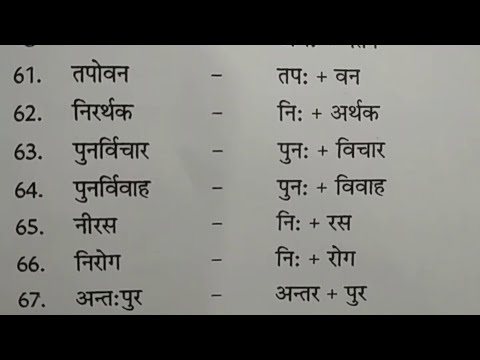 61. तपोवन - तप: + वन
62. निरर्थक - नि: + अर्थक
63. पुनर्विचार - पुन: + विचार
64. पुनर्विवाह - पुन: + विवाह
65. नीरस - नि: + रस
66. निरोग - नि: + रोग
67. अन्त:पुर - अन्तर + पुर